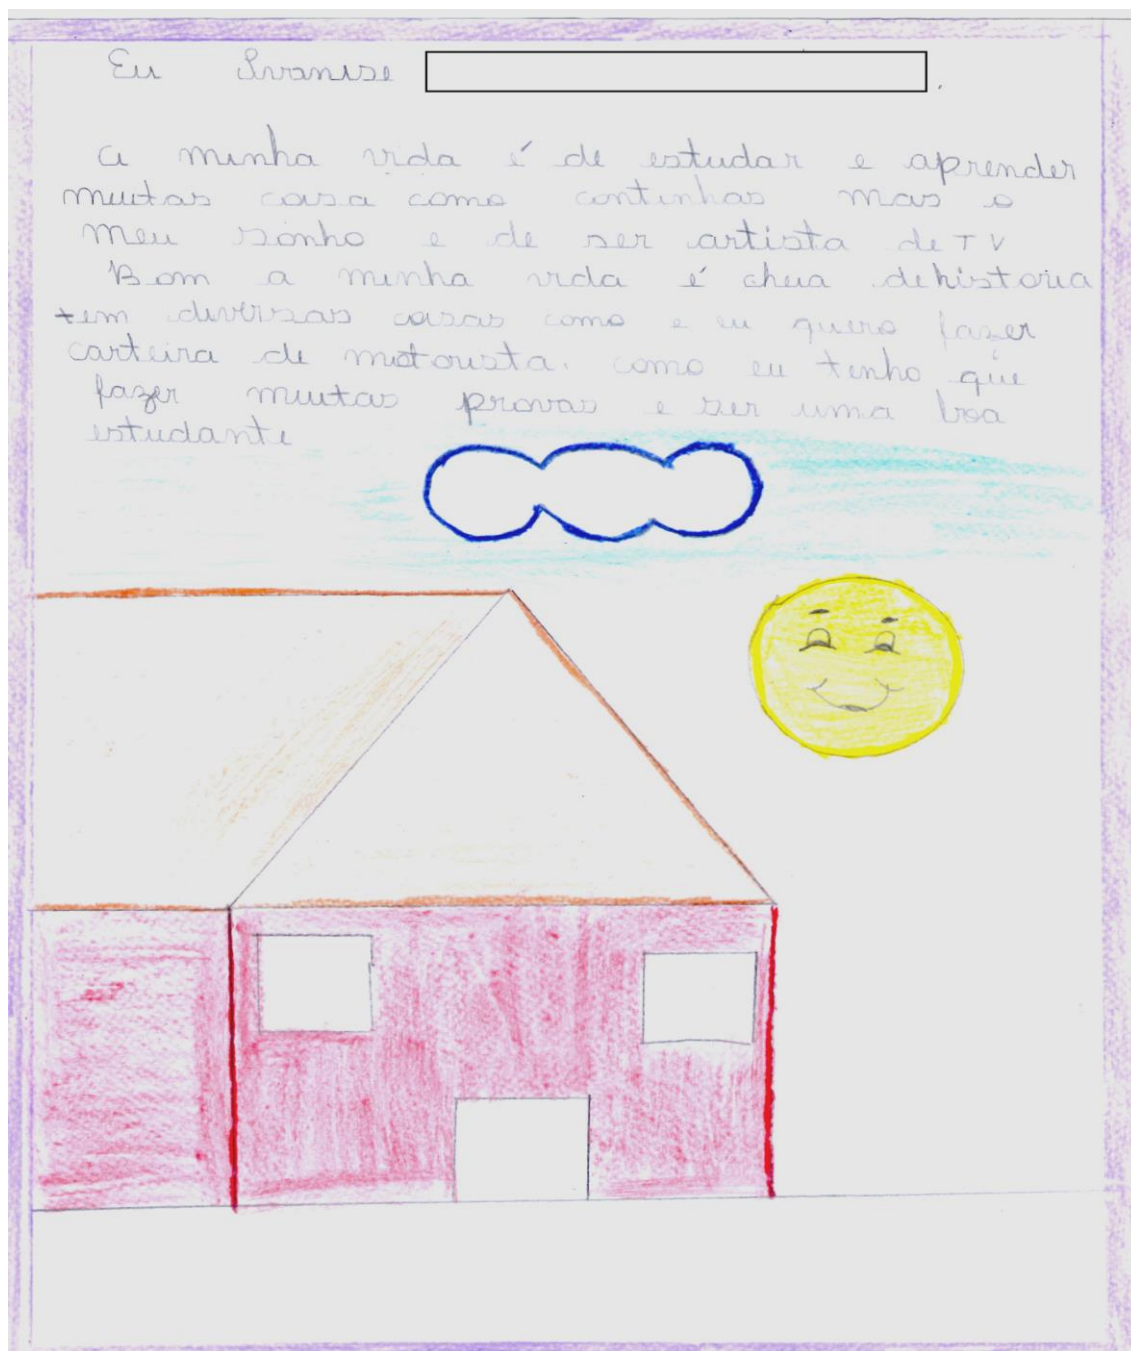 Eu Ivanise .
A minha vida é de estudar e aprender
muitas coisa como continhas mas o
meu sonho e de ser artista de TV
Bom a minha vida é cheia de historia
tem diversas coisas como e eu quero fazer
carteira de motorista. como eu tenho que
fazer muitas provas e ser uma boa
estudante